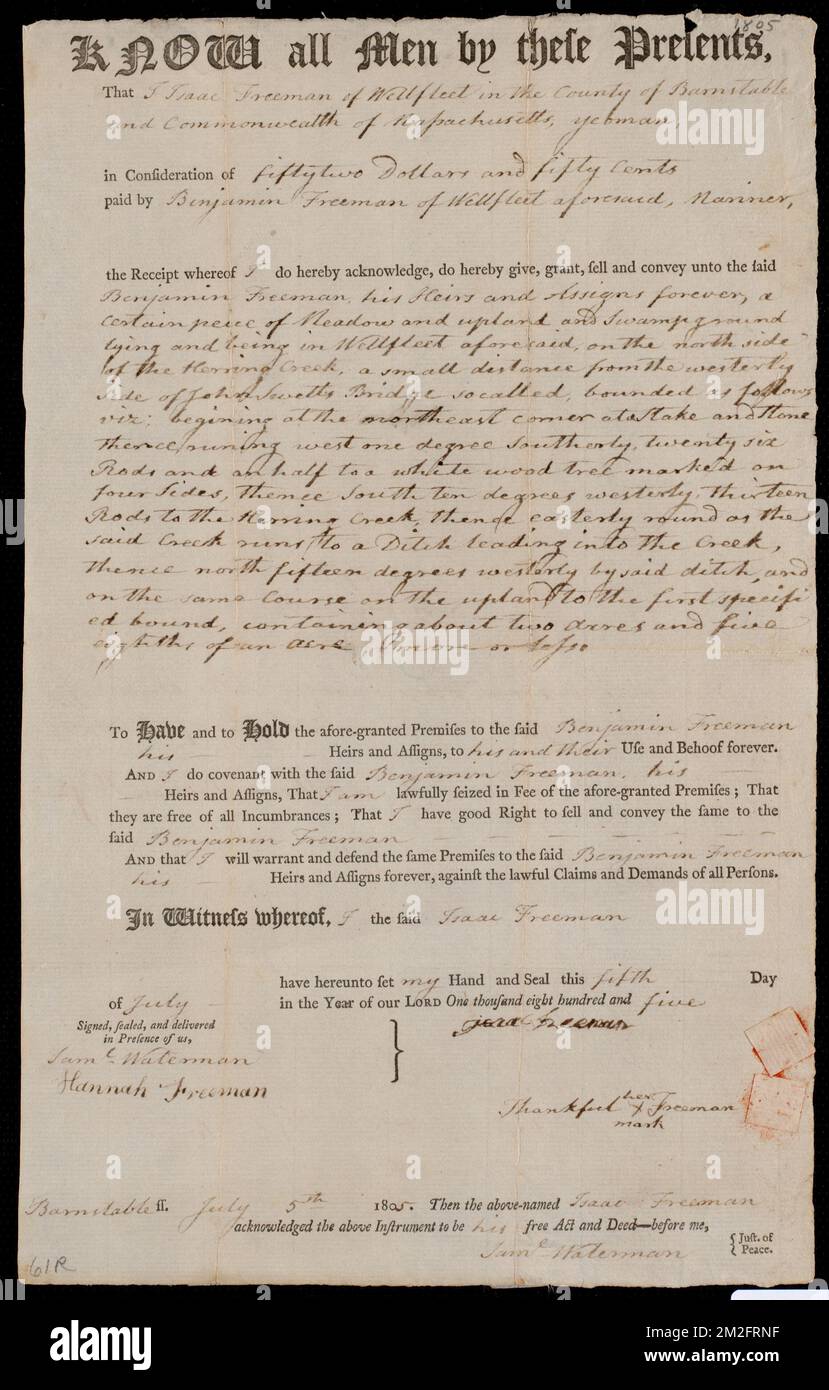 1805
KNOW all Men by theſe Preſents,
That I Isaac Freeman of Wellfleet in the County of Barnstable
and Commonwealth of Maſsachusetts, yeoman,
in Conſideration of fiftytwo Dollars and fifty Cents
paid by Benjamin Freeman of Wellfleet aforesaid, Mariner,
the Receipt whereof I do hereby acknowledge, do hereby give, grant, ſell and convey unto the ſaid
Benjamin Freeman, his Heirs and Assigns forever, a
certain peice of Meadow and upland and Swamp ground
lying and being in Wellfleet aforesaid, on the north side
of the Herring Creek, a small distance from the westerly
side of John Swetts Bridge so called, bounded as follows
viz; begining at the northeast corner at a Stake and Stone
thence runing west one degree Southerly, twenty six
Rods and an half to a white wood tree marked on
four Sides, thence South ten degrees westerly, thirteen
Rods to the Herring Creek, thence easterly round as the
said Creek runs, to a Ditch leading into the Creek,
thence north fifteen degrees westerly by said ditch, and
on the same Course on the upland to the first specifi
ed bound, containing about two acres and five
eighths of an acre, more or leſs
To Have and to Hold the afore-granted Premiſes to the ſaid Benjamin Freeman
his Heirs and Aſſigns, to his and their Uſe and Behoof forever.
AND I do covenant with the ſaid Benjamin Freeman, his
Heirs and Aſſigns, That I am lawfully ſeized in Fee of the afore-granted Premiſes; That
they are free of all Incumbrances; That I have good Right to ſell and convey the ſame to the
ſaid Benjamin Freeman
AND that I will warrant and defend the ſame Premiſes to the ſaid Benjamin Freeman
his Heirs and Aſſigns forever, againſt the lawful Claims and Demands of all Perſons.
In Witneſs whereof, I the ſaid Isaac Freeman
have hereunto ſet my Hand and Seal this fifth Day
of July in the Year of our LORD One thouſand eight hundred and five
Signed, ſealed, and delivered
in Preſence of us,
Isaac Freeman
Saml Waterman
Hannah Freeman
her
Thankful X Freeman
mark
Barnstable ſſ. July 5th 1805. Then the above-named Isaac Freeman
acknowledged the above Inſtrument to be his free Act and Deed—before me,
Saml Waterman { Juſt. of
Peace.
61R
alamy
Image ID: 2M2FRNF
www.alamy.com